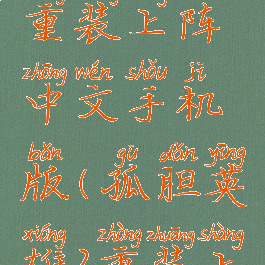 重装上阵
zhōng wén shǒu jī
中文手机
bǎn gū dǎn yīng
版(孤胆英
xióng zhòng zhuāng shàng
雄)重装上